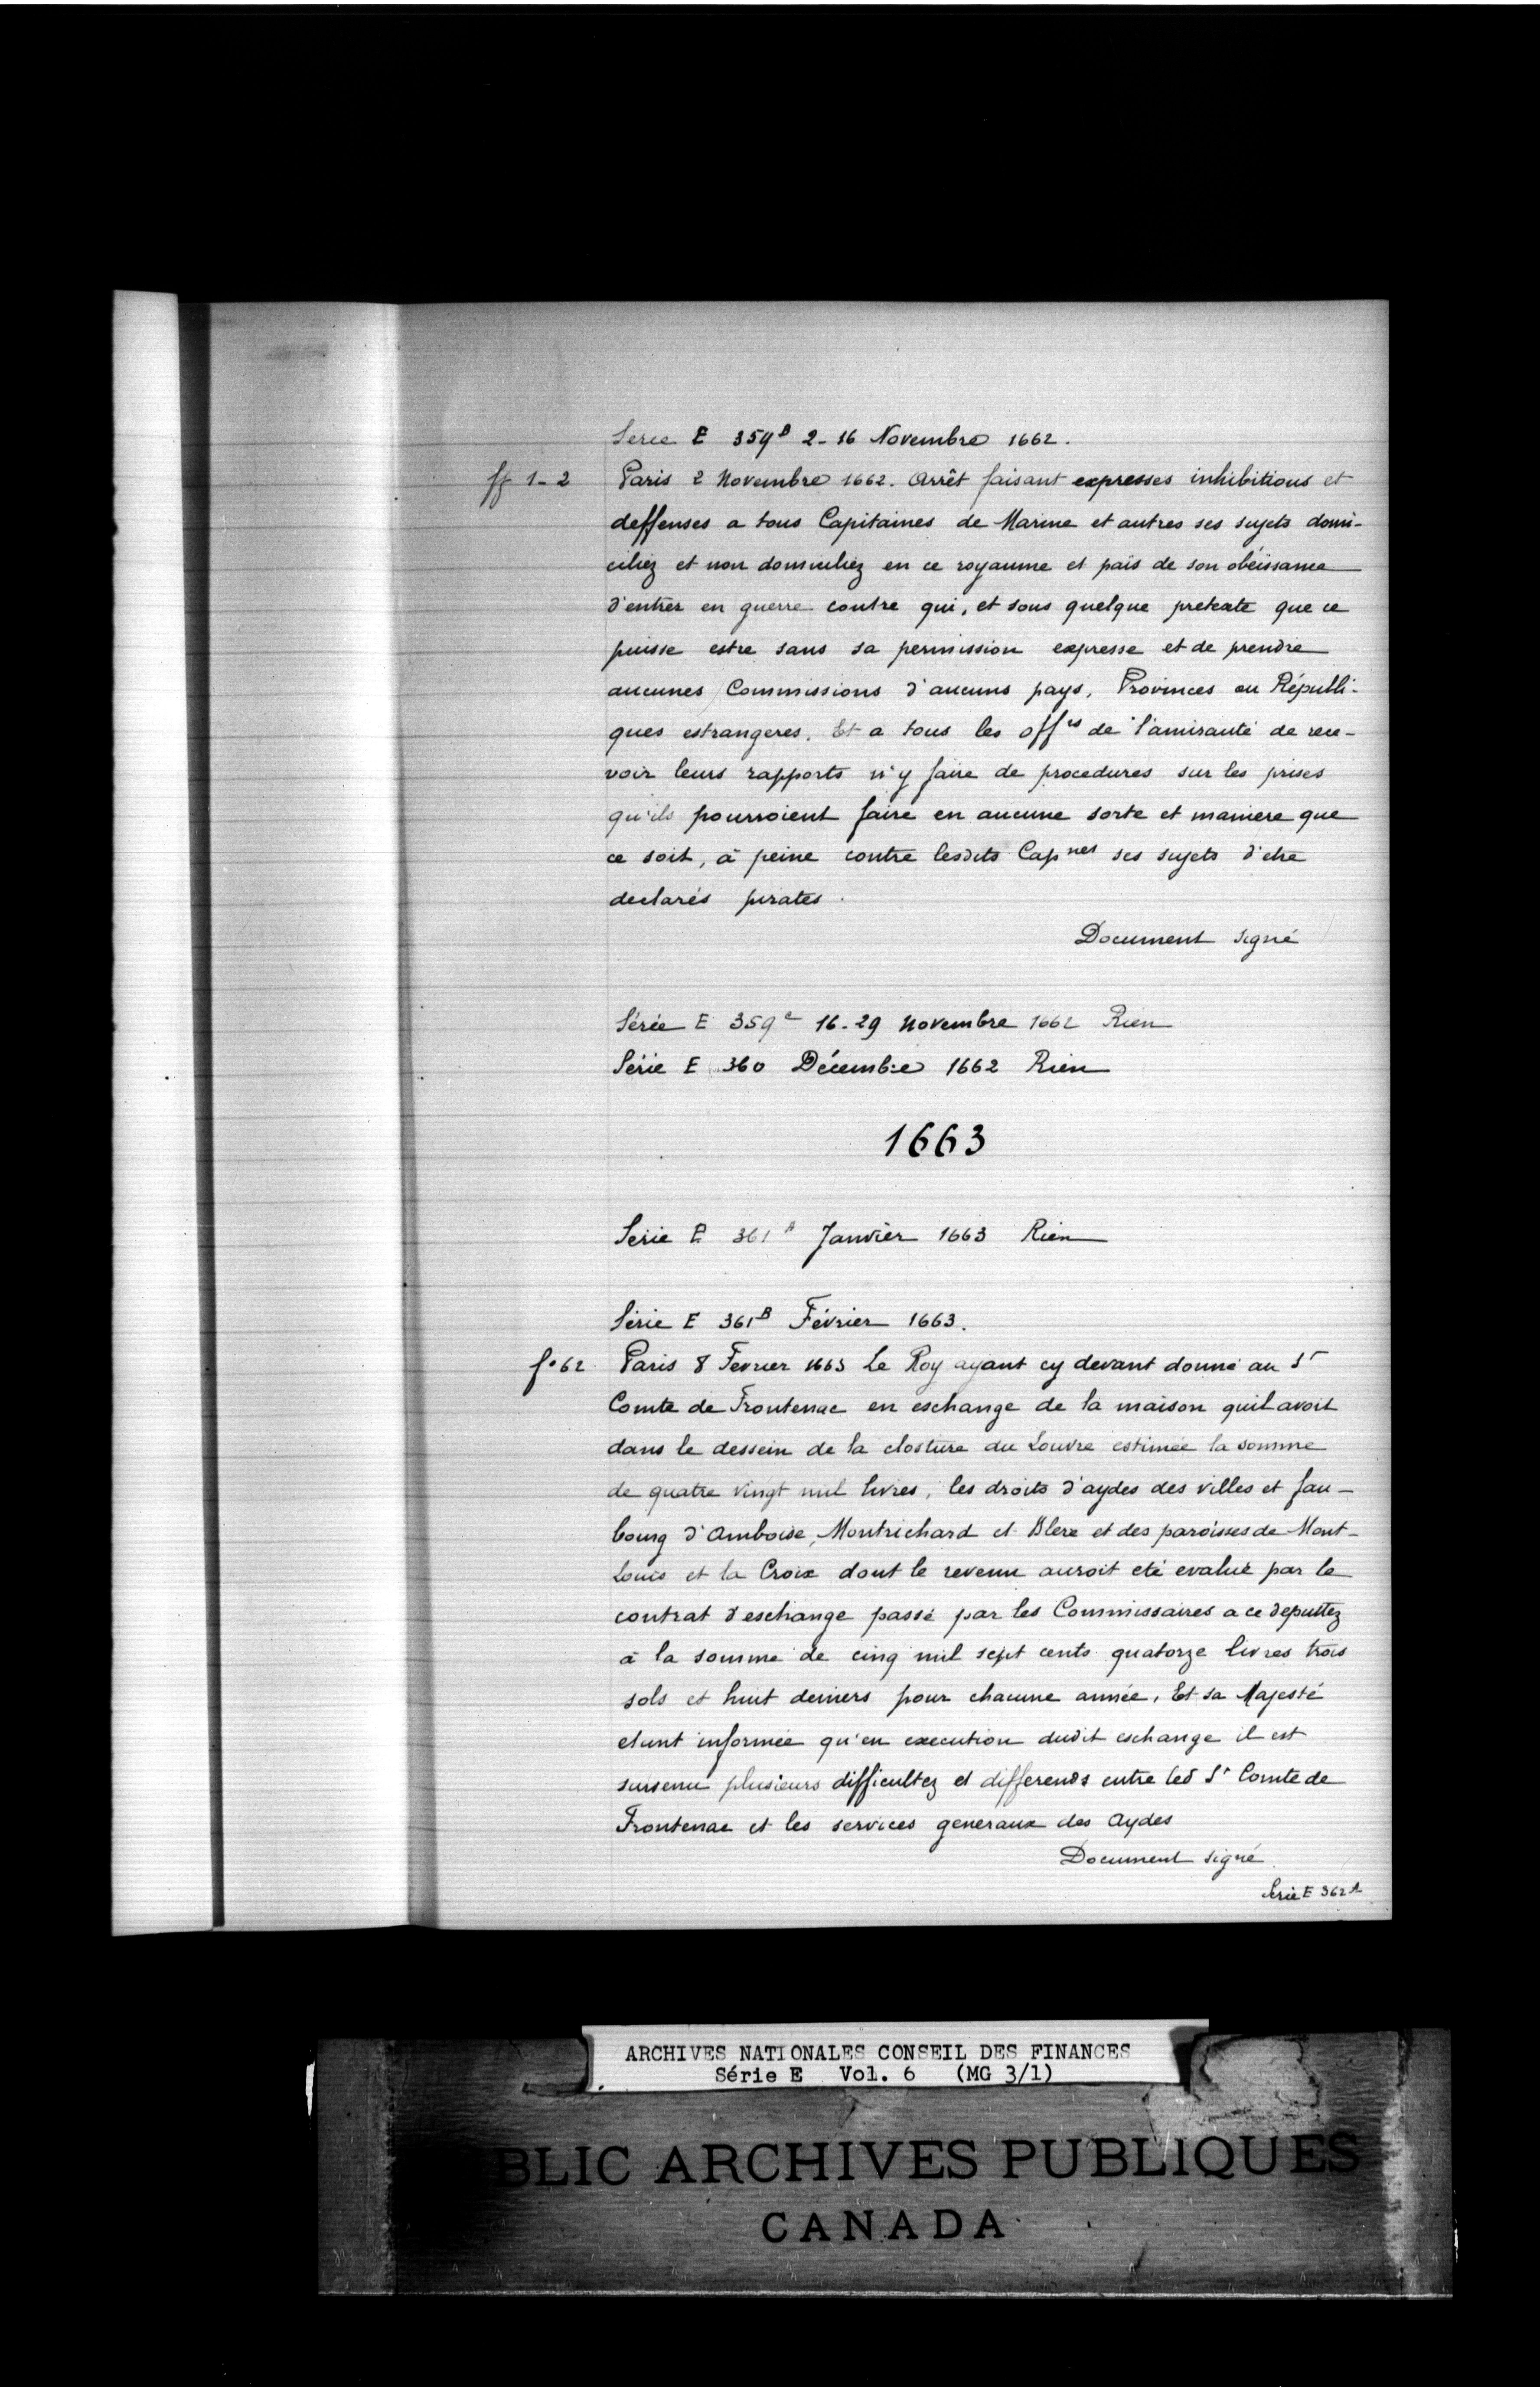 Serie E 359B 2-16 Novembre 1662.
ff 1-2 Paris 2 Novembre 1662. Arrêt faisant expresses inhibitions et
deffenses a tous Capitaines de Marine et autres ses sujets domi-
ciliez et non domiciliez en ce royaume et païs de son obéissance
d'entrer en guerre contre qui, et sous quelque pretexte que ce
puisse estre sans sa permission expresse et de prendre
aucunes Commissions d'aucuns pays, Provinces ou Républi-
ques estrangeres. Et a tous les offrs de l'amirauté de rece-
voir leurs rapports n'y faire de procedures sur les prises
qu'ils pourroient faire en aucune sorte et maniere que
ce soit, à peine contre lesdits Capnes ses sujets d'etre
declarés pirates.
Document signé
Série E 359c 16-29 Novembre 1662 Rien
Série E 360 Décembre 1662 Rien
1663
Serie E 361A Janvier 1663 Rien
Série E 361B Février 1663.
fo 62 Paris 8 Fevrier 1663 Le Roy ayant cy devant donné au Sr
Comte de Frontenac en eschange de la maison quil avoit
dans le dessein de la closture du Louvre estimée la somme
de quatre vingt mil livres, les droits d'aydes des villes et fau-
bourg d'Amboise, Montrichard et Blere et des paroisses de Mont-
Louis et la Croix dont le revenu auroit eté evalué par le
contrat d'eschange passé par les Commissaires a ce deputtez
à la somme de cinq mil sept cents quatorze livres trois
sols et huit deniers pour chacune année, Et sa Majesté
etant informée qu'en execution dudit eschange il est
survenu plusieurs difficultez et differends entre led Sr Comte de
Frontenac et les services generaux des Aydes
Document signé
Serie E 362A
ARCHIVES NATIONALES CONSEIL DES FINANCES
Série E Vol. 6 (MG 3/1)
BLIC ARCHIVES PUBLIQUES
CANADA